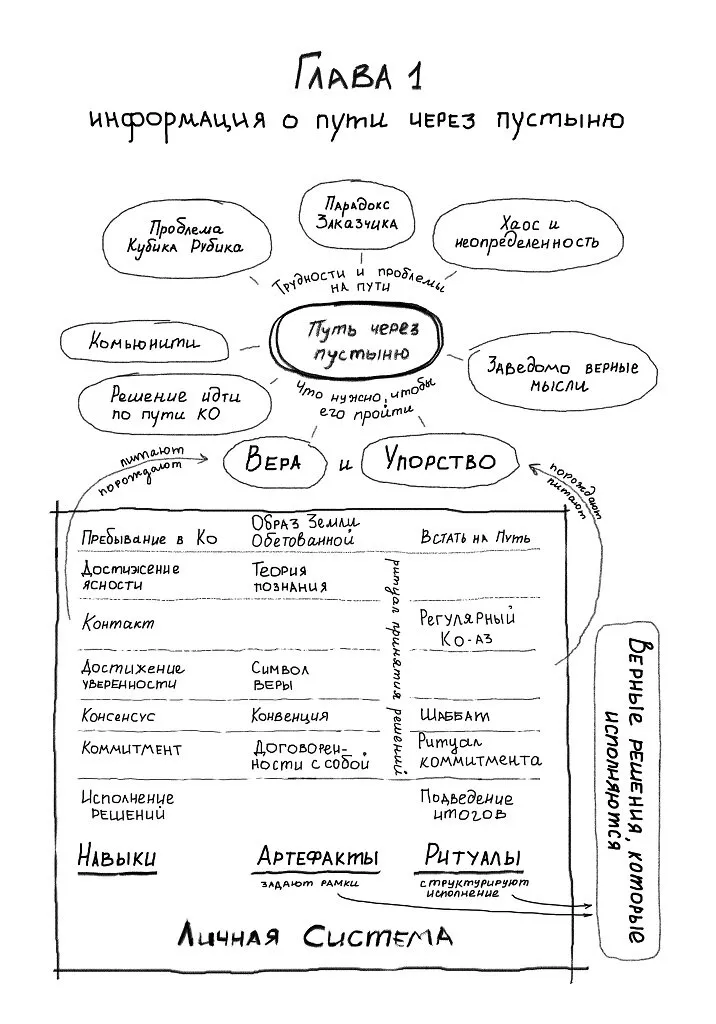 ГЛАВА 1
информация о пути через пустыню
Проблема
Кубика Рубика
Парадокс
Заказчика
Хаос и
неопределенность
Трудности и проблемы
на пути
Путь через
пустыню
Комьюнити
Заведомо верные
мысли
Решение идти
по пути КО
Что нужно, чтобы
его пройти
Вера
и
Упорство
питают
порождают
порождают
питают
Пребывание в Ко
Образ Земли
Обетованной
Встать на Путь
Достижение
ясности
Теория
познания
ритуал принятия решений
Контакт
Регулярный
Ко-аз
Достижение
уверенности
Символ
веры
Консенсус
Конвенция
Шаббат
Коммитмент
Договорен-
ности с собой
Ритуал
коммитмента
Исполнение
решений
Подведение
итогов
Навыки
Артефакты
задают рамки
Ритуалы
структурируют
исполнение
Верные решения, которые
исполняются
Личная Система